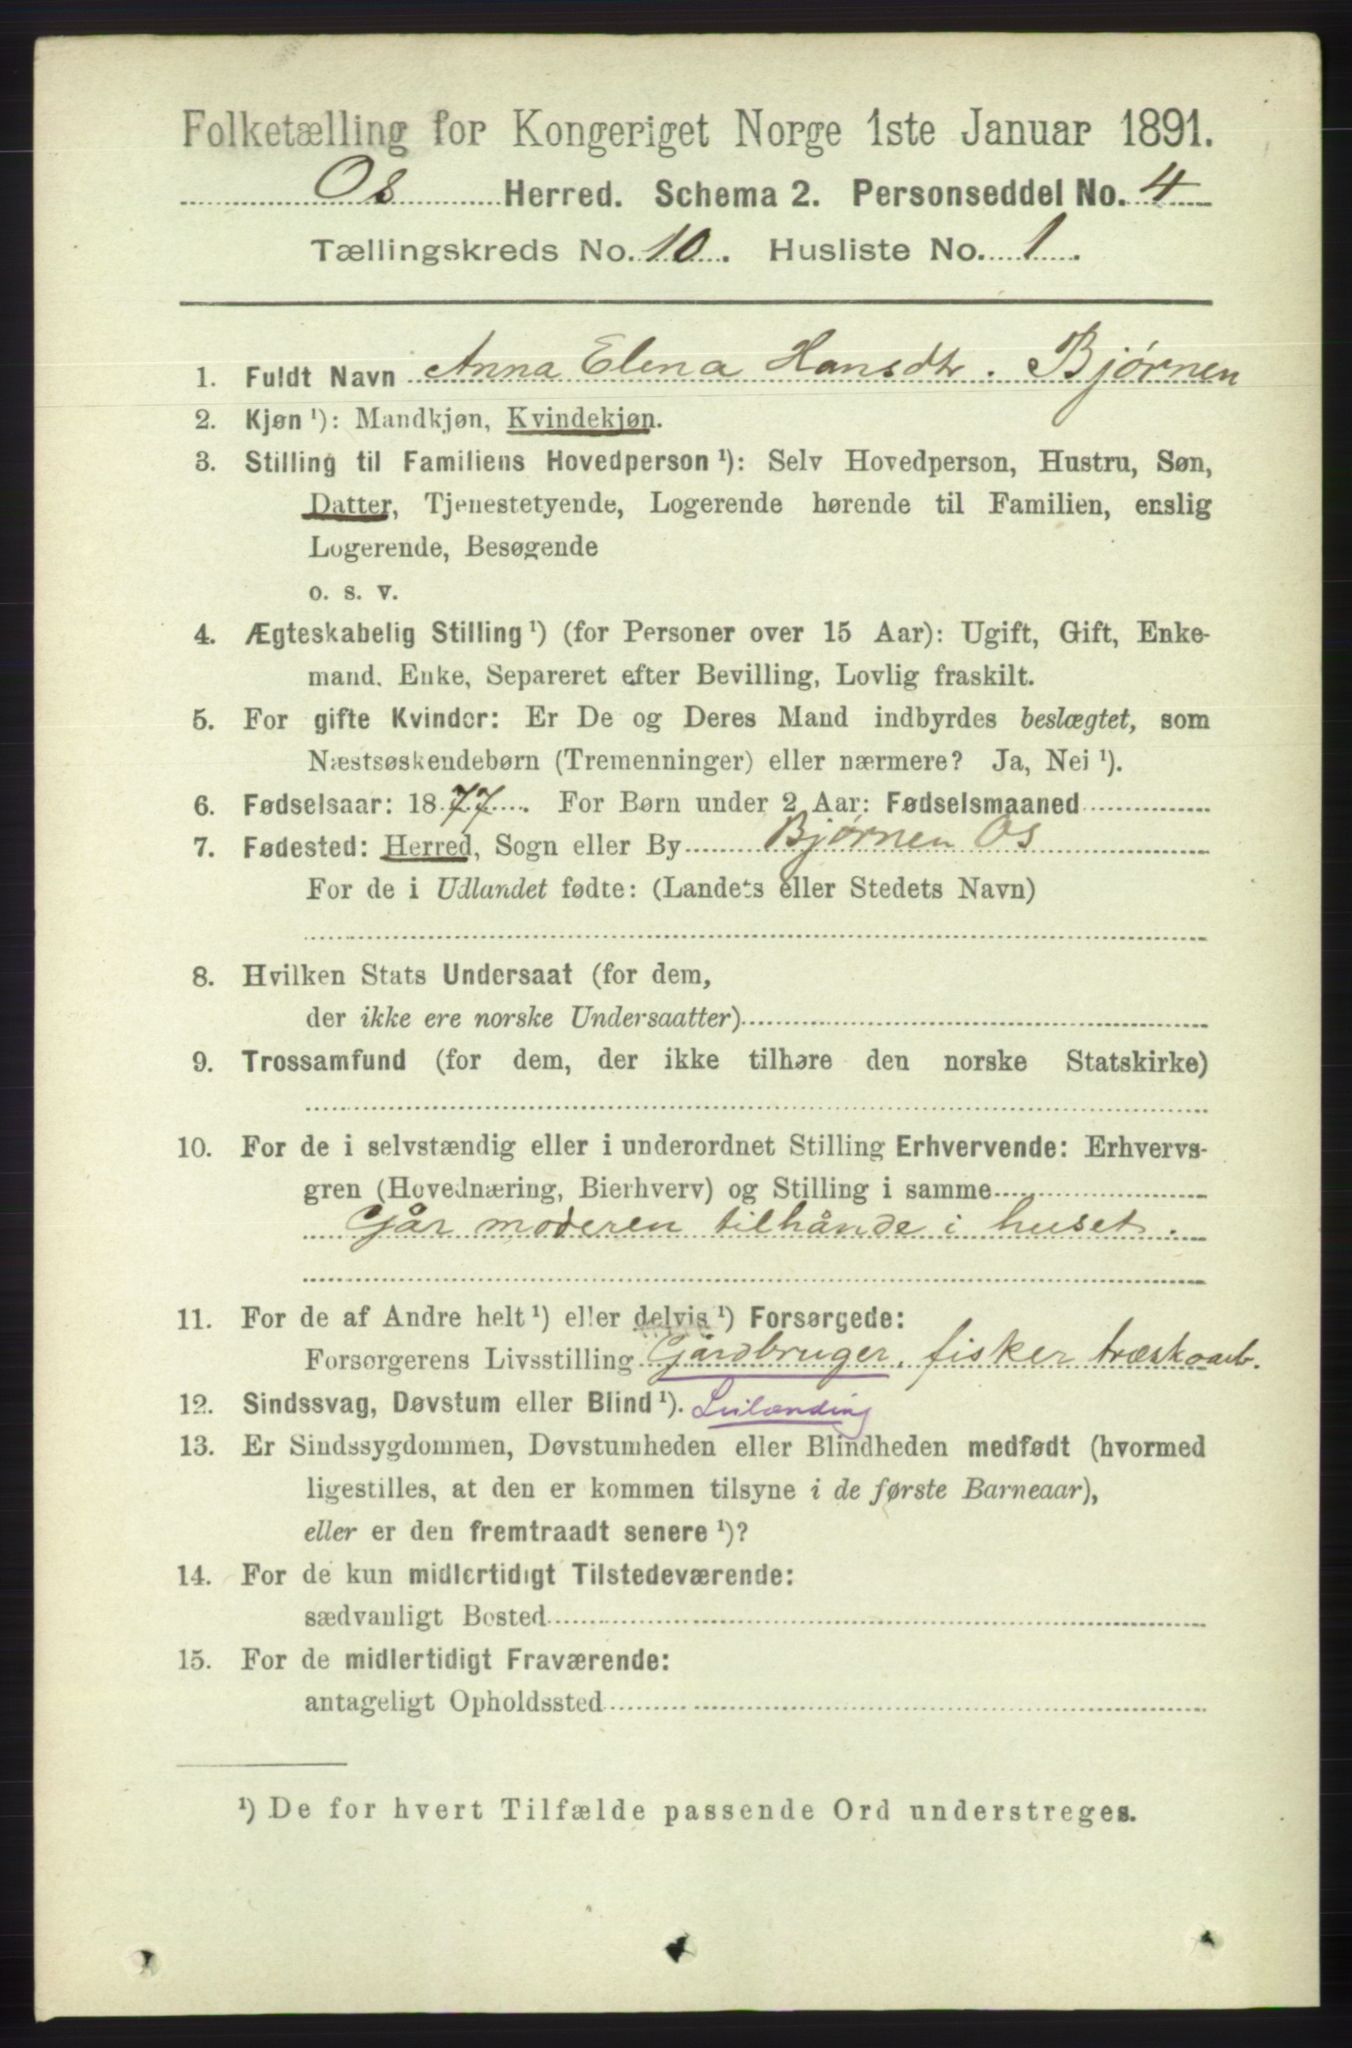 Folketælling for Kongeriget Norge 1ste Januar 1891.
Os Herred. Schema 2. Personseddel No. 4
Tællingskreds No. 10. Husliste No. 1.
1. Fuldt Navn Anna Elena Hansdtr. Bjørnen
2. Kjøn ¹): Mandkjøn, Kvindekjøn.
3. Stilling til Familiens Hovedperson ¹): Selv Hovedperson, Hustru, Søn,
Datter, Tjenestetyende, Logerende hørende til Familien, enslig
Logerende, Besøgende
o. s. v.
4. Ægteskabelig Stilling ¹) (for Personer over 15 Aar): Ugift, Gift, Enke-
mand, Enke, Separeret efter Bevilling, Lovlig fraskilt.
5. For gifte Kvinder: Er De og Deres Mand indbyrdes beslægtet, som
Næstsøskendebørn (Tremenninger) eller nærmere? Ja, Nei ¹).
6. Fødselsaar: 1877. For Børn under 2 Aar: Fødselsmaaned
7. Fødested: Herred, Sogn eller By Bjørnen Os
For de i Udlandet fødte: (Landets eller Stedets Navn)
8. Hvilken Stats Undersaat (for dem,
der ikke ere norske Undersaatter)
9. Trossamfund (for dem, der ikke tilhøre den norske Statskirke)
10. For de i selvstændig eller i underordnet Stilling Erhvervende: Erhvervs-
gren (Hovednæring, Bierhverv) og Stilling i samme
Går moderen tilhånde i huset.
11. For de af Andre helt ¹) eller delvis ¹) Forsørgede:
Forsørgerens Livsstilling Gårdbruger, fisker træskoarb.
12. Sindssvag, Døvstum eller Blind ¹). Leilænding
13. Er Sindssygdommen, Døvstumheden eller Blindheden medfødt (hvormed
ligestilles, at den er kommen tilsyne i de første Barneaar),
eller er den fremtraadt senere ¹)?
14. For de kun midlertidigt Tilstedeværende:
sædvanligt Bosted
15. For de midlertidigt Fraværende:
antageligt Opholdssted
¹) De for hvert Tilfælde passende Ord understreges.